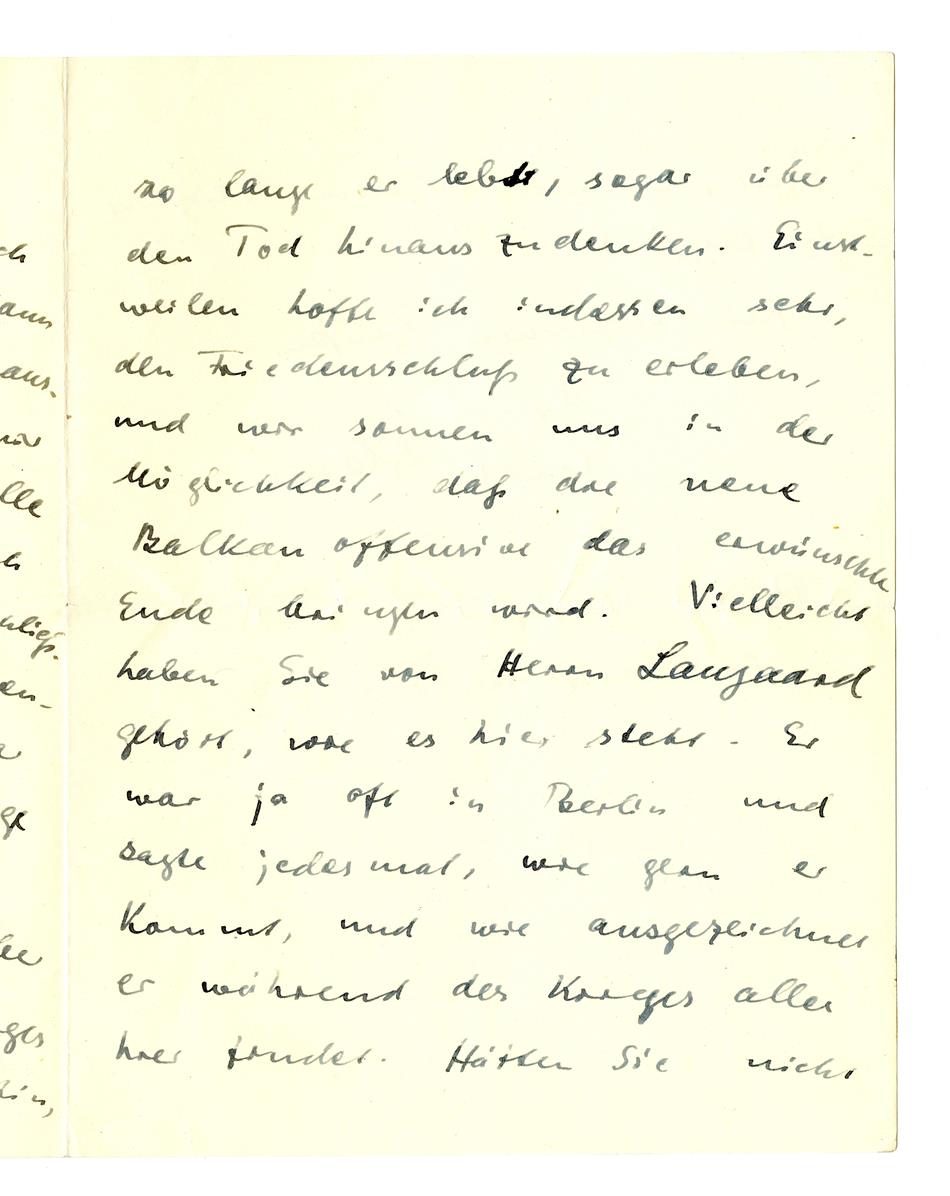 so lange er lebt, sogar über
den Tod hinaus zudenken. Einst-
weilen hoffe ich indessen sehr,
den Friedensschluß zu erleben,
und wir sonnen uns in der
Möglichkeit, daß die neue
Balkanoffensive das erwünschte
Ende bringen wird. Vielleicht
haben Sie von Herrn Langaard
gehört, wie es hier steht. Er
war ja oft in Berlin und
sagte jedesmal, wie gern er
kommt, und wie ausgezeichnet
er während des Krieges alles
hier findet. Hätten Sie nicht